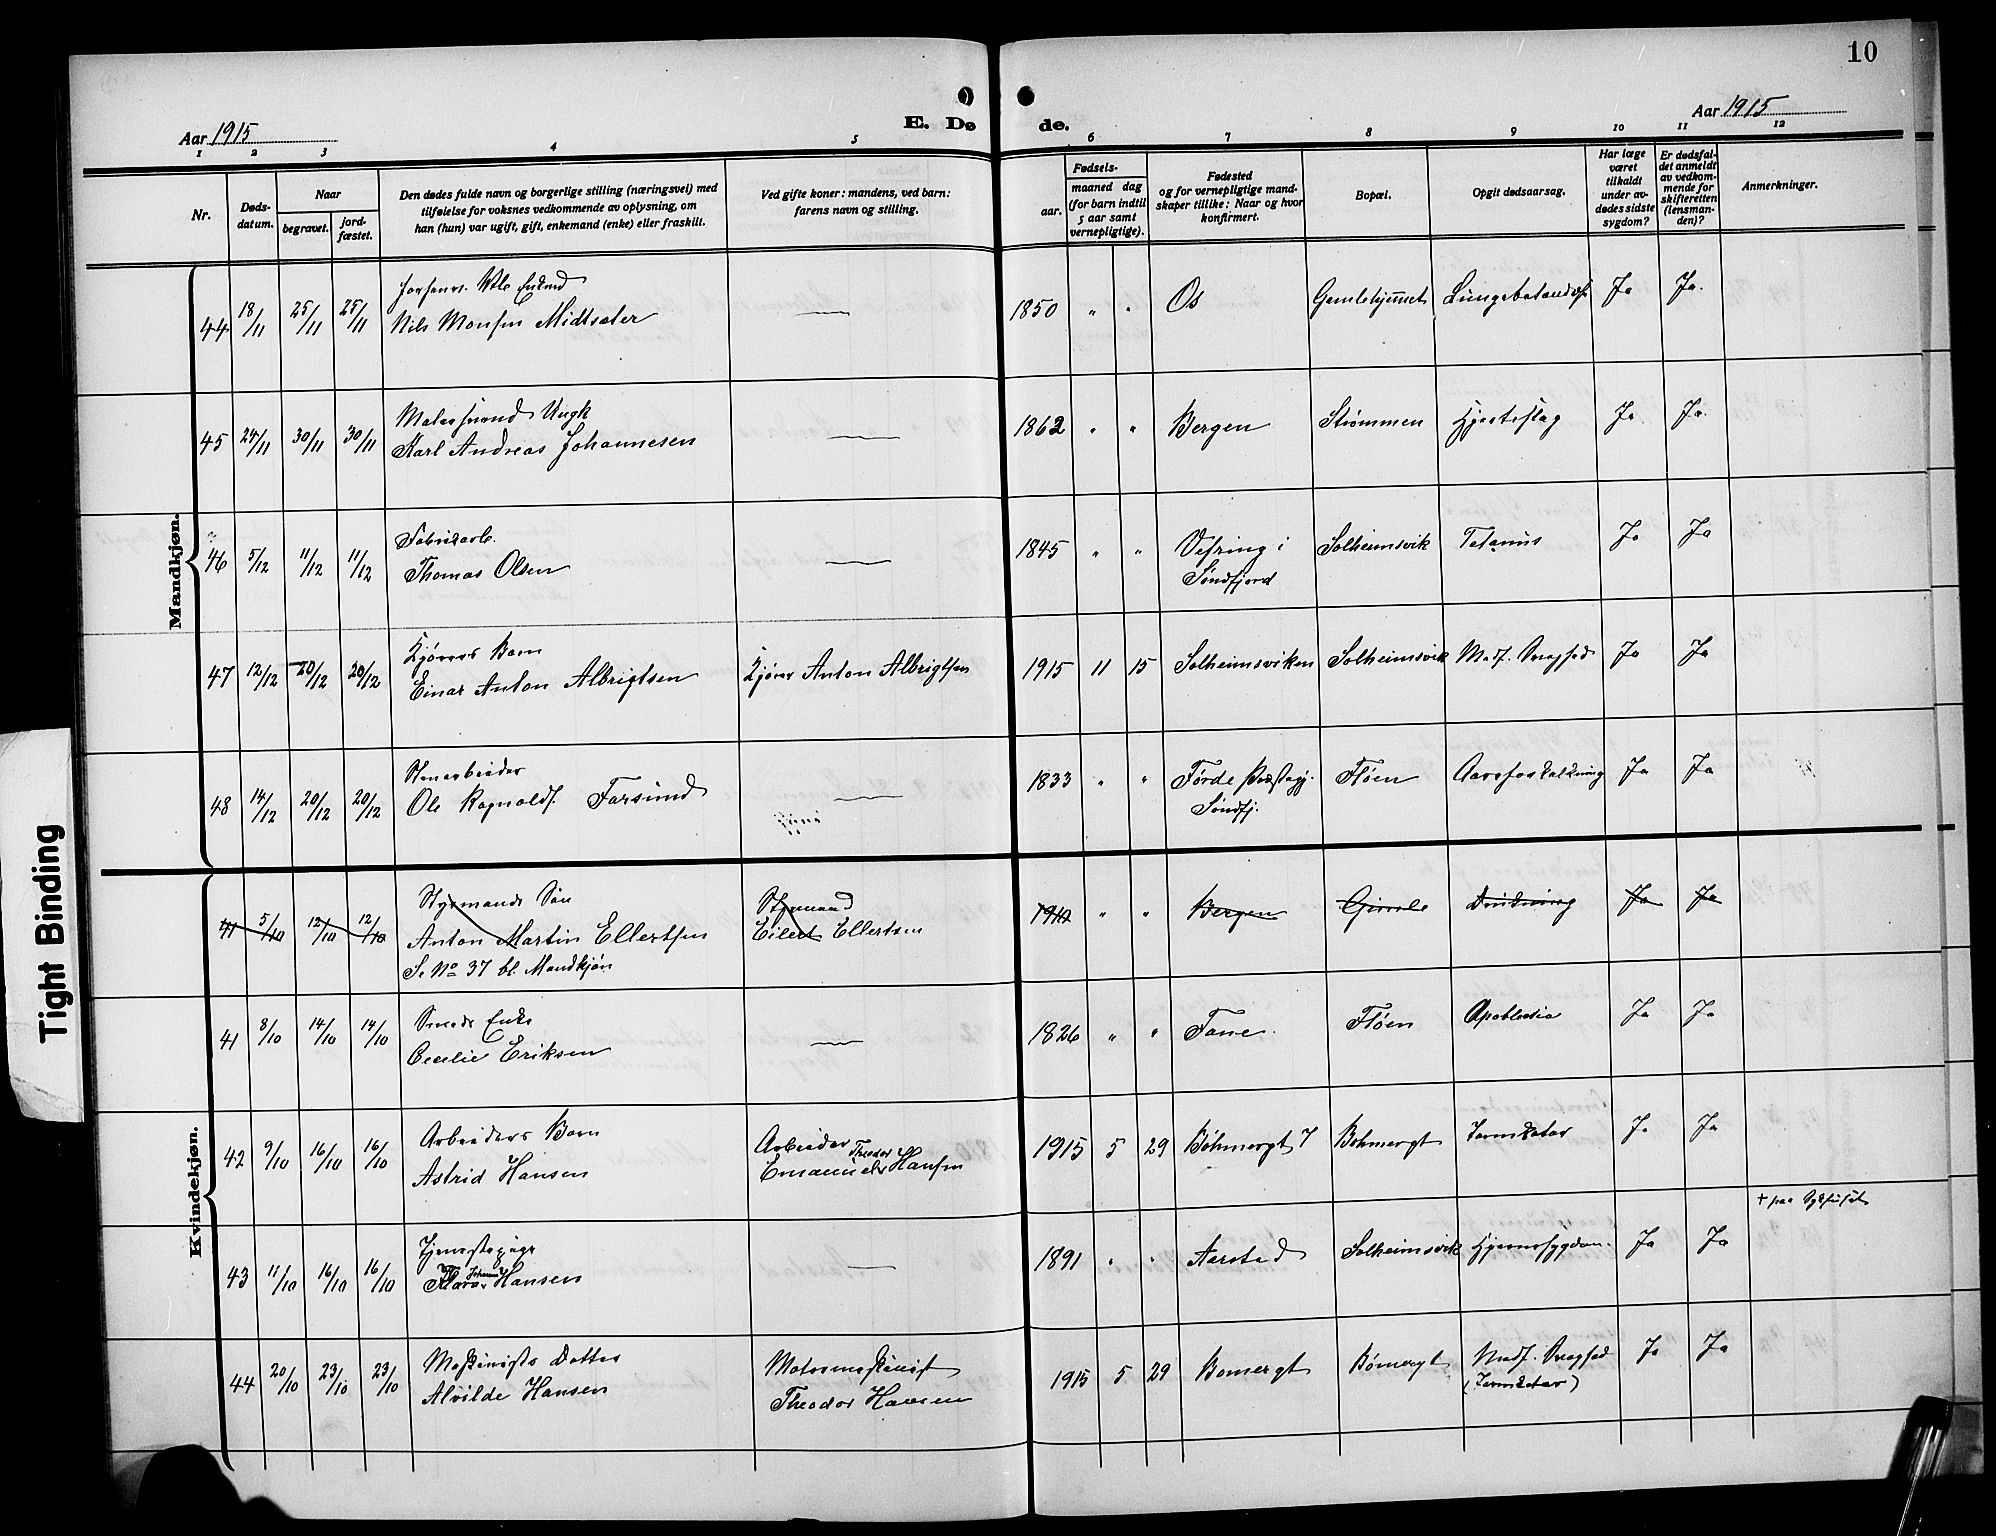 10
Aar 1915
E. Dø
de.
Aar 1915
1 2 3 4 5 6 7 8 9 10 11 12
Nr.
Døds-
datum.
Naar
begravet.
jord-
fæstet.
Den dødes fulde navn og borgerlige stilling (næringsvei) med
tilføielse for voksnes vedkommende av oplysning, om
han (hun) var ugift, gift, enkemand (enke) eller fraskilt.
Ved gifte koner: mandens, ved barn:
farens navn og stilling.
Fødsels-
aar.
maaned dag
(for barn indtil
5 aar samt
vernepligtige).
Fødested
og for vernepligtige mand-
skaper tillike: Naar og hvor
konfirmert.
Bopæl.
Opgit dødsaarsag.
Har læge
været
tilkaldt
under av-
dødes sidste
sygdom?
Er dødsfal-
det anmeldt
av vedkom-
mende for
skifteretten
(lensman-
den)?
Anmerkninger.
Mandkjøn.
44 18/11 25/11 25/11
Nils Monsen Midtsæter
1850 " " Os Gamlehjemmet Ja Ja.
45 24/11 30/11 30/11 Malersvend Ungk
Karl Andreas Johannesen
1862 " " Bergen Strømmen Hjerteslag Ja Ja.
46 5/12 11/12 11/12 Fabrikarb.
Thomas Olsen
1845 " " Vefring i
Søndfjord
Solheimsvik Tetanus Ja Ja
47 12/12 20/12 20/12 Kjørers Barn
Einar Anton Albrigtsen
Kjører Anton Albrigtsen
1915 11 15 Solheimsviken Solheimsvik Medf. Svaghed Ja Ja
48 14/12 20/12 20/12 Stenarbeider
Ole Ragnolds. Farsund
1833 " " Førde Præstegj.
Søndfj.
Fløen Aareforkalkning Ja Ja
Kvindekjøn.
41 5/10 12/10 12/10 Styrmands Søn
Anton Martin Ellertsen
Se No 37 bl. Mandkjøn
Styrmand
Eilert Ellertsen
1910 " " Bergen Gimle Drukning Ja Ja
41 8/10 14/10 14/10 Smeds Enke
Cecilie Eriksen
1826 " " Fane. Fløen Apoblexia Ja Ja
42 9/10 16/10 16/10 Arbeiders Barn
Astrid Hansen
Arbeider Theodor
Emanuel Hansen
1915 5 29 Bøhmergt 7 Bøhmergt Tarmkatar Ja Ja
43 11/10 16/10 16/10 Tjenestepige
Klara Hansen
1891 " " Aarstad Solheimsvik Hjernesygdom. Ja Ja
+ paa Sykehuset
44 20/10 23/10 23/10 Maskinists Datter
Alvilde Hansen
Motormaskinist
Theodor Hansen
1915 5 29 Bømergt Bømergt Medf. Svaghed
(Tarmkatar)
Ja Ja
Tight Binding